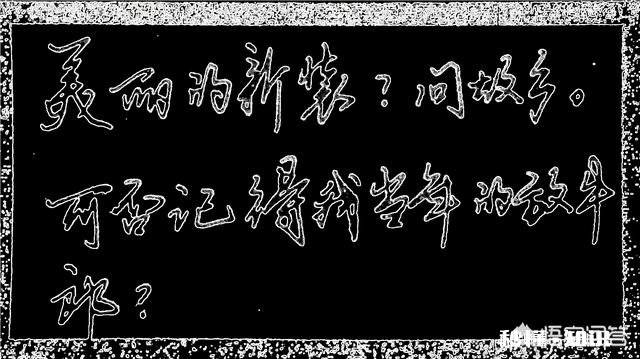 美丽的新装？问故乡。
可否记得我当年的放牛
郎？
悟空问答